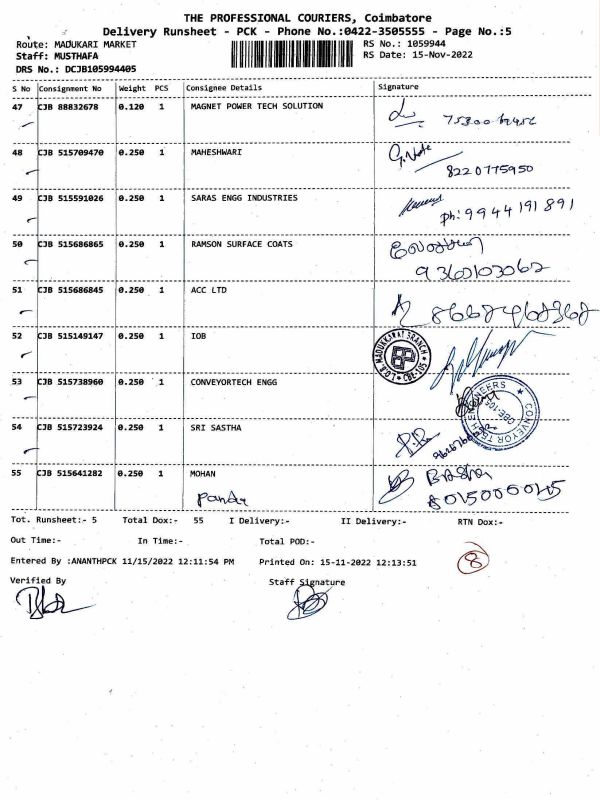 THE PROFESSIONAL COURIERS, Coimbatore
Delivery Runsheet - PCK - Phone No.:0422-3505555 - Page No.:5
Route: MADUKARI MARKET RS No.: 1059944
Staff: MUSTHAFA RS Date: 15-Nov-2022
DRS No.: DCJB105994405
S No Consignment No Weight PCS Consignee Details Signature
47 CJB 88832678 0.120 1 MAGNET POWER TECH SOLUTION
48 CJB 515709470 0.250 1 MAHESHWARI
8220775950
49 CJB 515591026 0.250 1 SARAS ENGG INDUSTRIES
ph: 9944191891
50 CJB 515686865 0.250 1 RAMSON SURFACE COATS
9363103062
51 CJB 515686845 0.250 1 ACC LTD
52 CJB 515149147 0.250 1 IOB
MADUKKARAI BRANCH
53 CJB 515738960 0.250 1 CONVEYORTECH ENGG
CONVEYOR TECH ENGINEERS
CBE-105
54 CJB 515723924 0.250 1 SRI SASTHA
55 CJB 515641282 0.250 1 MOHAN
Tot. Runsheet:- 5 Total Dox:- 55 I Delivery:- II Delivery:- RTN Dox:-
Out Time:- In Time:- Total POD:-
8
Entered By :ANANTHPCK 11/15/2022 12:11:54 PM Printed On: 15-11-2022 12:13:51
Verified By Staff Signature